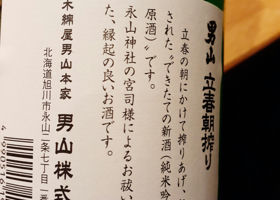 男山 立春朝搾り
立春の朝にかけて搾りあげ、
された〝できたての新酒（純米吟
原酒）〟です。
永山神社の宮司様によるお祓い
た、縁起の良いお酒です。
木綿屋男山本家 男山株式
北海道旭川市永山二条七丁目一番